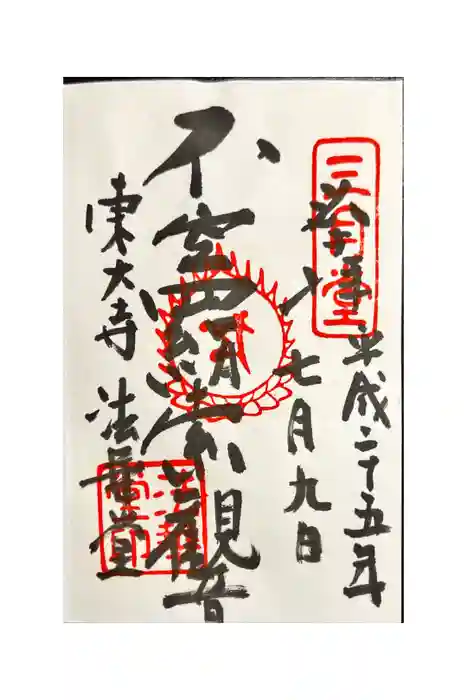 奉拝
平成二十五年
七月九日
不空羂索観音
東大寺
法華堂
三月堂